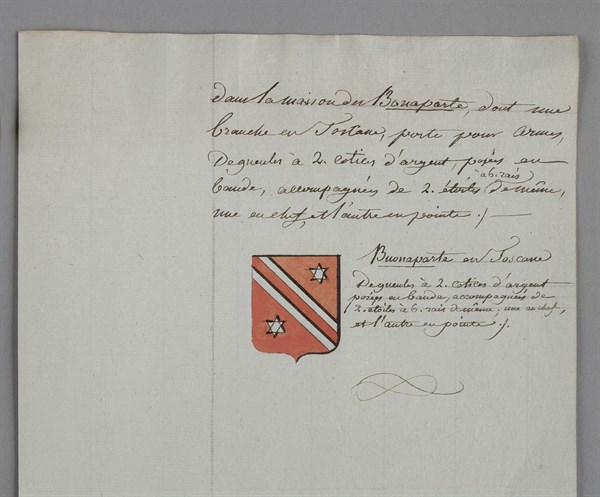 dans la maison des Bonaparte, dont une
branche en Toscane, porte pour armes,
De gueules à 2. cotices d'argent, posées en
bande, accompagnés de 2. étoiles à 6. rais de même,
une en chef, et l'autre en pointe ./.
Buonaparte en Toscane
De gueules à 2. cotices d'argent
posées en bande, accompagnées de
2. étoiles à 6. rais de même; une en chef,
et l'autre en pointe ./.